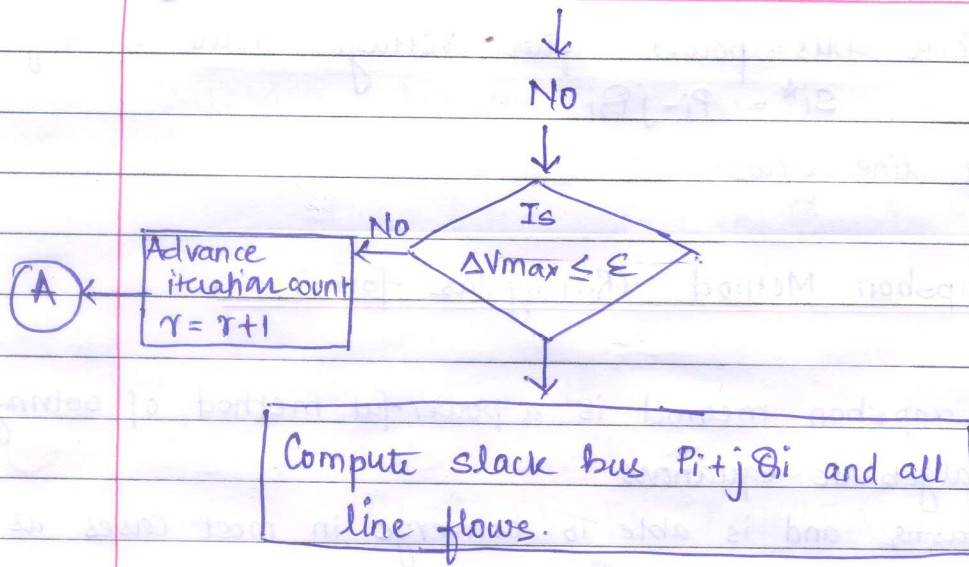 NO
Is
ΔVmax ≤ ε
No
Advance
iteration count
r = r+1
A
Compute slack bus Pi+jQi and all
line flows.